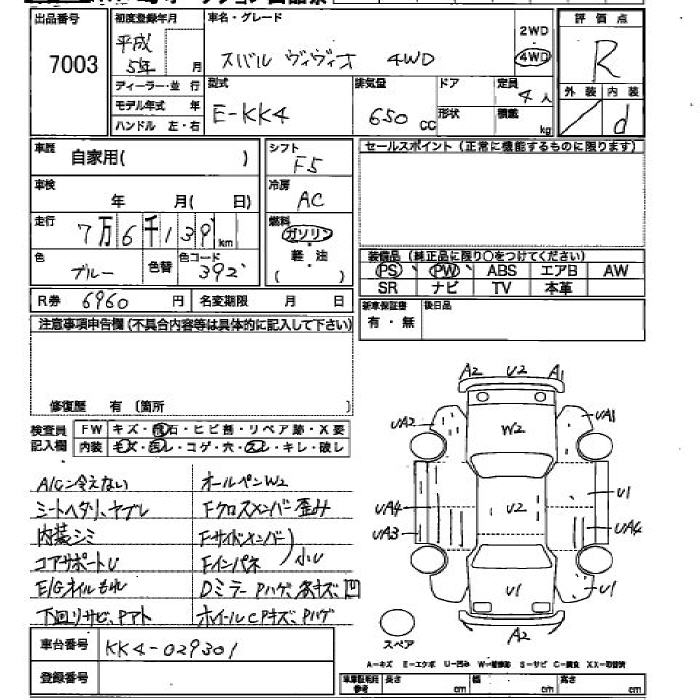 出品番号
7003
初度登録年月
平成
5年 月
ディーラー・並 行
モデル年式 年
ハンドル 左・右
車名・グレード
スバル ヴィヴィオ 4WD
2WD
4WD
型式
E-KK4
排気量
650 CC
ドア
形状
定員
4 人
積載
kg
評価点
R
外装 内装
/ d
車歴
自家用( )
車検
年 月( 日)
走行
7万6千139 km
色
ブルー
色替
色コード
392
R券 6960 円 名変期限 月 日
シフト
F5
冷房
AC
燃料
ガソリン
軽・油
( )
セールスポイント (正常に機能するものに限ります)
装備品 (純正品に限り○をつけてください)
PS PW ABS エアB AW
SR ナビ TV 本革
新車保証書
有・無
後日品
注意事項申告欄 (不具合内容等は具体的に記入して下さい)
修復歴 有 (箇所 )
検査員
記入欄
FW キズ・飛石・ヒビ割・リペア跡・X要
内装 キズ・汚レ・コゲ・穴・スレ・キレ・破レ
A/C冷えない
シートヘタリ、ヤブレ
内装シミ
コアサポートU
E/Gオイルもれ
下回リサビ、Pアト
オールペンW2
Fクロスメンバー歪み
Fサイドメンバー
Fインパネ
小U
Dミラー Pハゲ、各キズ、凹
ホイールCPキズ、Pハゲ
車台番号 KK4-029301
登録番号
A2 U2 A1
UA2 UA1
W2
UA4 U2 U1
UA3 UA4
U1 U1
A2
スペア
A-キズ E-エクボ U-凹み W-補修跡 S-サビ C-腐食 XX-切替済
車庫証明用
参考
長さ cm 幅 cm 高さ cm